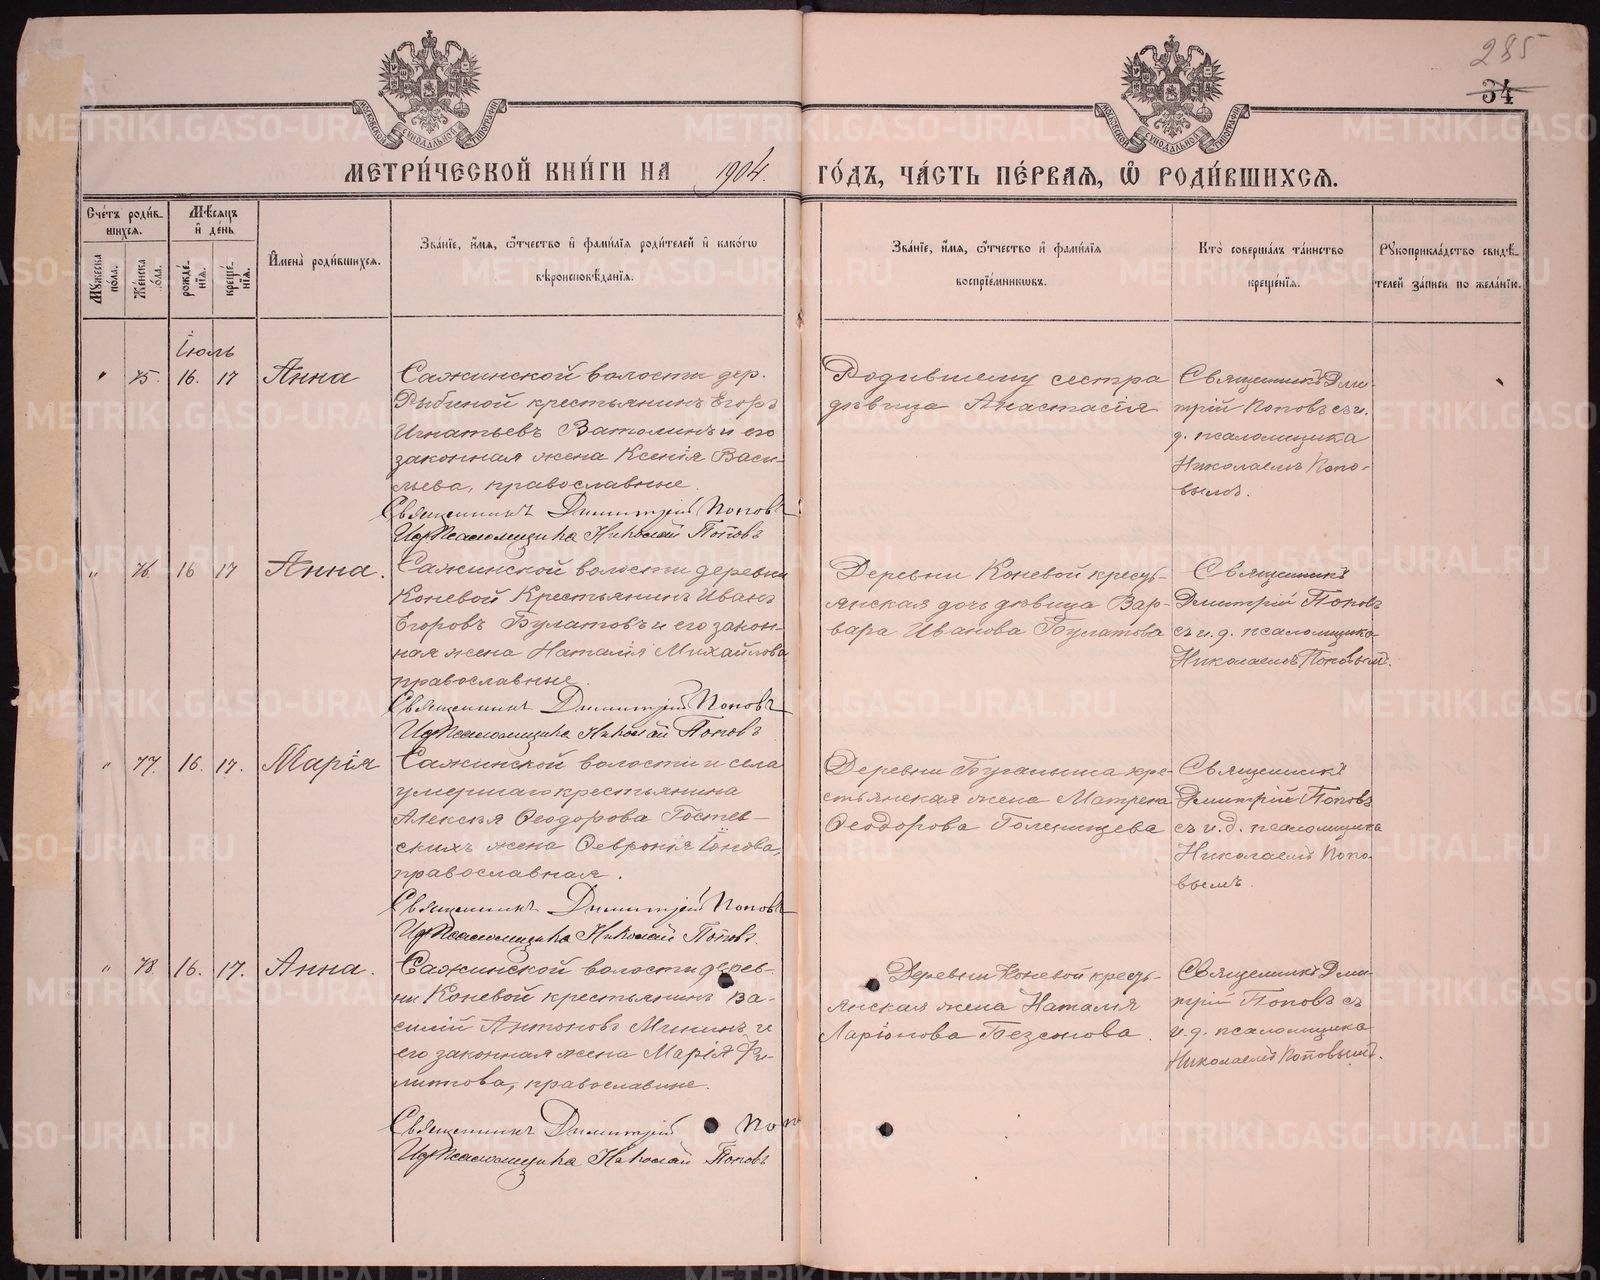 285
34
МОСКОВСКОЙ СѴНОДАЛЬНОЙ ТИПОГРАФІИ
МОСКОВСКОЙ СѴНОДАЛЬНОЙ ТИПОГРАФІИ
МЕТРИ́ЧЕСКОЙ КНИ́ГИ НА 1904. ГО́ДЪ, ЧА́СТЬ ПЕ́РВАЯ, Ѡ҆ РОДИ́ВШИХСЯ.
Сче́тъ роди́в-
шихся.
Мꙋ́жеска по́ла.
Же́нска по́ла.
Мѣ́сяцъ и҆ де́нь
рожде́-нїя.
креще́-нїя.
И҆мена̀ роди́вшихся.
Зва́нїе, и҆́мя, ѻ҆́тчество и҆ фами́лїя роди́телей и҆ како́гѡ
вѣроисповѣ́данїя.
Зва́нїе, и҆́мя, ѻ҆́тчество и҆ фами́лїя
воспрїе́мникѡвъ.
Кто̀ соверша́лъ та́инство
креще́нїя.
Рꙋкоприкла́дство свидѣ́-
телей за́писи по жела́нїю.
Іюль
" 75. 16. 17 Анна
Сажинской волости дер.
Рыбиной крестьянинъ Егоръ
Игнатьевъ Ватолинъ и его
законная жена Ксенія Васи-
льева, православные.
Священникъ Димитрій Поповъ
И д Псаломщика Николай Поповъ
Родившему сестра
дѣвица Анастасія
Священникъ Дми-
трій Поповъ съ и.
д. псаломщика
Николаемъ Попо-
вымъ.
" 76. 16 17 Анна.
Сажинской волости деревни
Коневой Крестьянинъ Иванъ
Егоровъ Булатовъ и его закон-
ная жена Наталія Михайлова
православные.
Священникъ Димитрій Поповъ
И д Псаломщика Николай Поповъ
Деревни Коневой кресть-
янская дочь дѣвица Вар-
вара Иванова Булатова
Священникъ
Дмитрій Поповъ
съ и. д. псаломщика
Николаемъ Поповымъ.
" 77. 16. 17. Марія
Сажинской волости и села
умершаго крестьянина
Алексѣя Ѳеодорова Гостев-
скихъ жена Ѳевронія Іонова,
православная.
Священникъ Димитрій Поповъ
И д Псаломщика Николай Поповъ.
Деревни Бугалыша кре-
стьянская жена Матрена
Ѳеодорова Голенищева
Священникъ
Дмитрій Поповъ
съ и. д. псаломщика
Николаемъ Попо-
вымъ.
" 78 16. 17. Анна.
Сажинской волости дерев-
ни Коневой крестьянинъ Ва-
силій Антоновъ Мининъ и
его законная жена Марія Фи-
липпова, православные.
Священникъ Димитрій Попо
И д Псаломщика Николай Поповъ
Деревни Коневой кресть-
янская жена Наталія
Ларіонова Безсонова.
Священникъ Дми-
трій Поповъ съ
и. д. псаломщика
Николаемъ Поповымъ.
METRIKI.GASO-URAL.RU